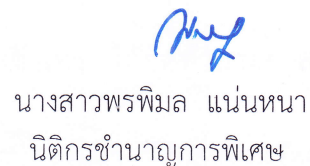 นางสาวพรพิมล แน่นหนา
นิติกรชำนาญการพิเศษ